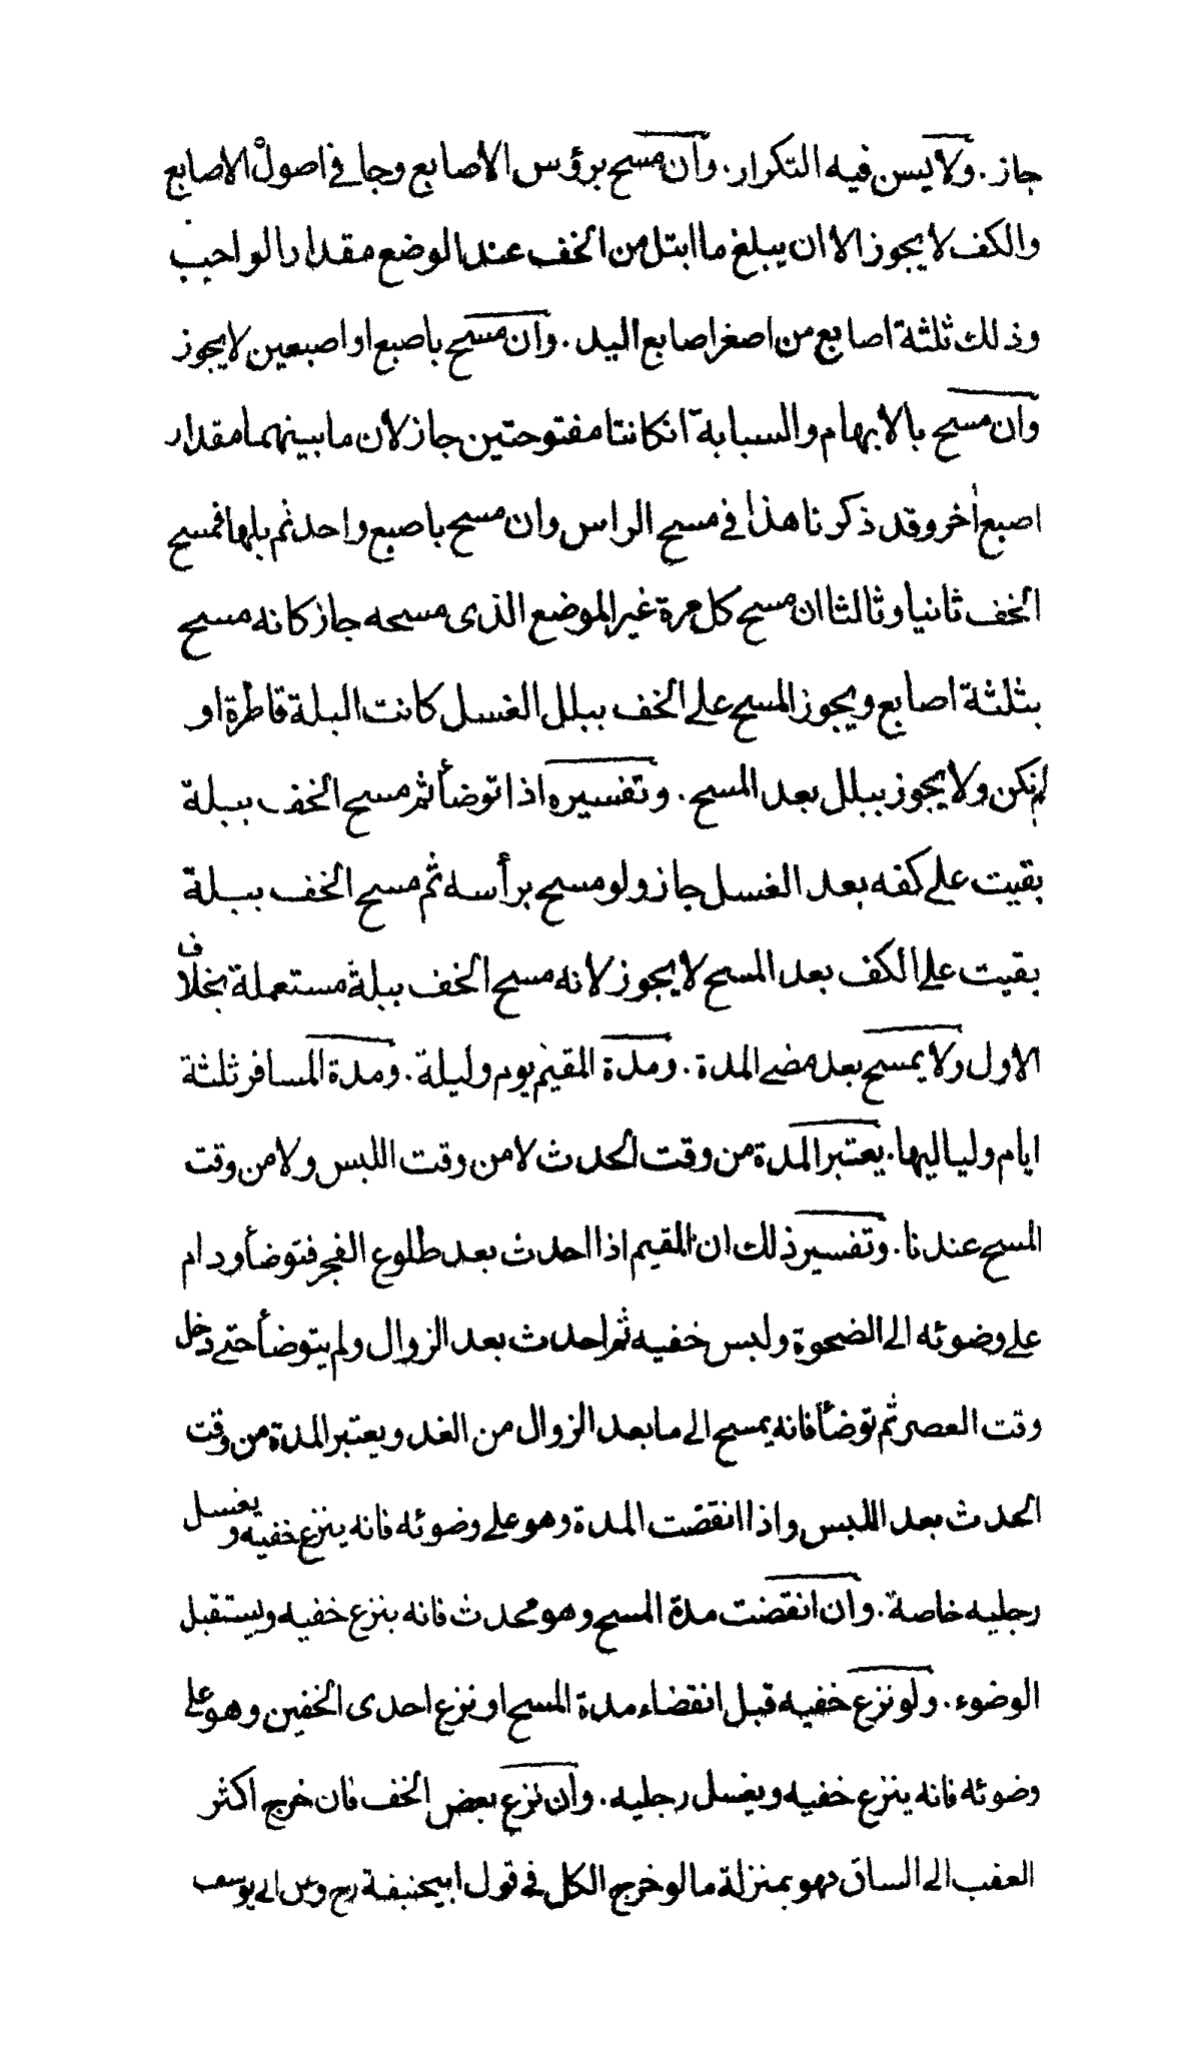 جاز . ولا يسن فيه التكرار . وان مسح برؤس الأصابع وجافى اصول الاصابع
والكف لا يجوز الا ان يبلغ ما ابتل من الخف عند الوضع مقدار الواجب
وذلك ثلثة اصابع من اصغر اصابع اليد . وان مسح باصبع او اصبعين لا يجوز
وان مسح بالابهام والسبابة ان كانتا مفتوحتين جاز لان ما بينهما مقدار
اصبع اخر وقد ذكرنا هذا في مسح الراس وان مسح باصبع واحد ثم بلها فمسح
الخف ثانيا وثالثا ان مسح كل مرة غير الموضع الذى مسحه جاز كانه مسح
بثلثة اصابع ويجوز المسح على الخف ببلل الغسل كانت البلة قاطرة او
لم تكن ولا يجوز ببلل بعد المسح . وتفسيره اذا توضأ ثم مسح الخف ببلة
بقيت على كفه بعد الغسل جاز ولو مسح برأسه ثم مسح الخف ببلة
بقيت على الكف بعد المسح لا يجوز لانه مسح الخف ببلة مستعملة بخلاف
الاول ولا يمسح بعد مضى المدة . ومدة المقيم يوم وليلة . ومدة المسافر ثلثة
ايام ولياليها . يعتبر المدة من وقت الحدث لا من وقت اللبس ولا من وقت
المسح عندنا . وتفسير ذلك ان المقيم اذا احدث بعد طلوع الفجر فتوضأ ودام
على وضوئه الى الضحوة ولبس خفيه ثم احدث بعد الزوال ولم يتوضأ حتى دخل
وقت العصر ثم توضأ فانه يمسح الى ما بعد الزوال من الغد ويعتبر المدة من وقت
الحدث بعد اللبس واذا انقضت المدة وهو على وضوئه فانه ينزع خفيه ويغسل
رجليه خاصة . وان انقضت مدة المسح وهو محدث فانه ينزع خفيه ويستقبل
الوضوء . ولو نزع خفيه قبل انقضاء مدة المسح او نزع احدى الخفين وهو على
وضوئه فانه ينزع خفيه ويغسل رجليه . وان نزع بعض الخف فان خرج اكثر
العقب الى الساق فهو بمنزلة ما لو خرج الكل في قول ابيحنيفة رح وعن ابى يوسف